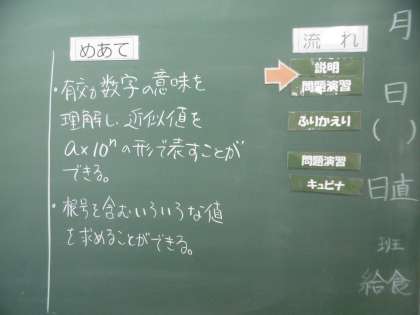 めあて
・有効数字の意味を
理解し、近似値を
a×10ⁿの形で表すことが
できる。
・根号を含むいろいろな値
を求めることができる。
流れ
説明
問題演習
ふりかえり
問題演習
キュビナ
月
日
( )
日直
班
給食